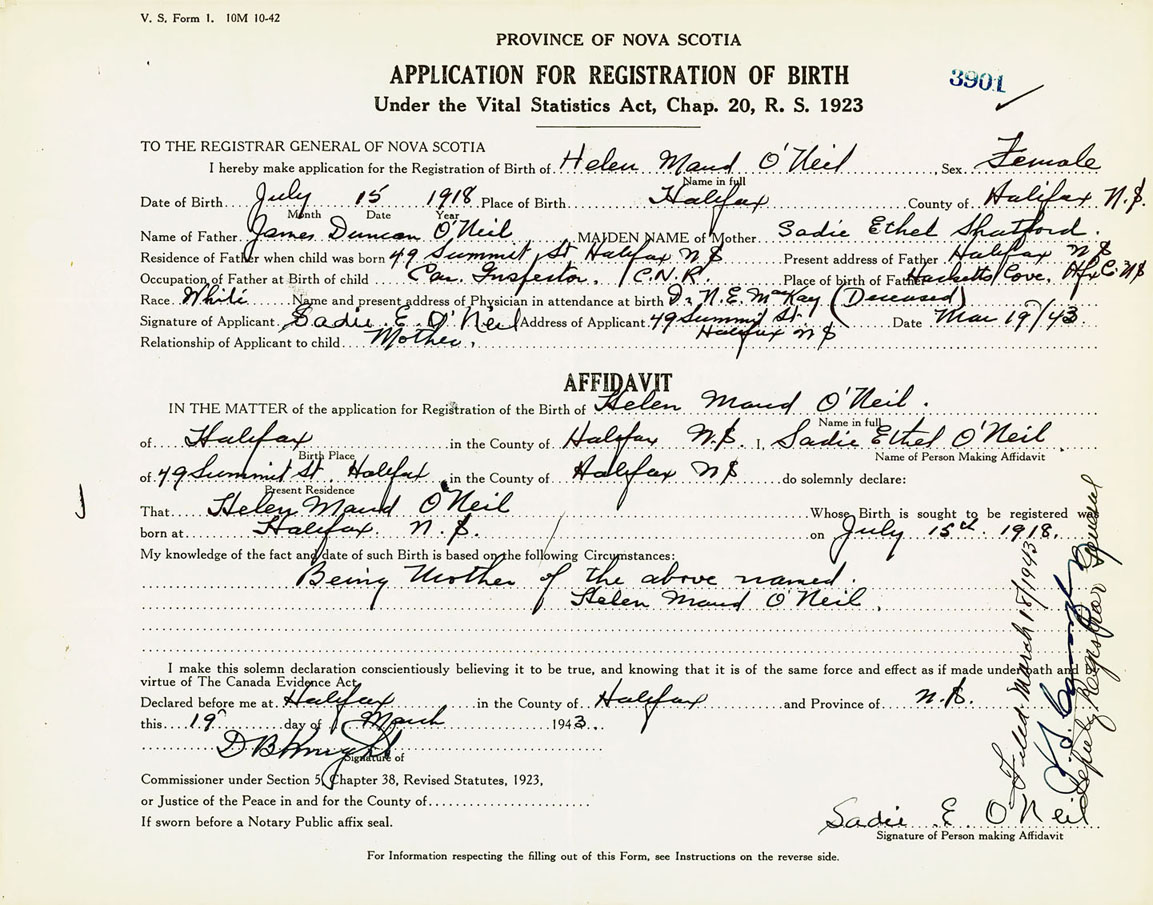 V. S. Form 1. 10M 10-42
PROVINCE OF NOVA SCOTIA
APPLICATION FOR REGISTRATION OF BIRTH
3901
Under the Vital Statistics Act, Chap. 20, R. S. 1923
TO THE REGISTRAR GENERAL OF NOVA SCOTIA
I hereby make application for the Registration of Birth of Helen Maud O'Neil, Sex Female
Name in full
Date of Birth July 15 1918 Place of Birth Halifax County of Halifax N.S.
Month Date Year
Name of Father James Duncan O'Neil MAIDEN NAME of Mother Sadie Ethel Shatford.
Residence of Father when child was born 49 Summit St. Halifax N S Present address of Father Halifax N S
Occupation of Father at Birth of child Car Inspector, C.N.R. Place of birth of Father Hacketts Cove, Hfx C. N S
Race White Name and present address of Physician in attendance at birth Dr N. E. McKay (Deceased)
Signature of Applicant Sadie E. O'Neil Address of Applicant 49 Summit St. Date Mar 19/43
Halifax N S
Relationship of Applicant to child Mother,
AFFIDAVIT
IN THE MATTER of the application for Registration of the Birth of Helen Maud O'Neil.
Name in full
of Halifax in the County of Halifax N.S. I, Sadie Ethel O'Neil
Birth Place Name of Person Making Affidavit
of 49 Summit St. Halifax, in the County of Halifax N S do solemnly declare:
Present Residence
That Helen Maud O'Neil Whose Birth is sought to be registered was
born at Halifax N.S. on July 15th 1918.
My knowledge of the fact and date of such Birth is based on the following Circumstances:
Being Mother of the above named.
Helen Maud O'Neil,
I make this solemn declaration conscientiously believing it to be true, and knowing that it is of the same force and effect as if made under oath and by
virtue of The Canada Evidence Act.
Declared before me at Halifax in the County of Halifax and Province of N.S.
this 19 day of March 1943
D B Knight
Signature of
Commissioner under Section 5, Chapter 38, Revised Statutes, 1923,
or Justice of the Peace in and for the County of
If sworn before a Notary Public affix seal.
Sadie E. O'Neil
Signature of Person making Affidavit
For Information respecting the filling out of this Form, see Instructions on the reverse side.
Filed March 18/1943
Deputy Registrar General